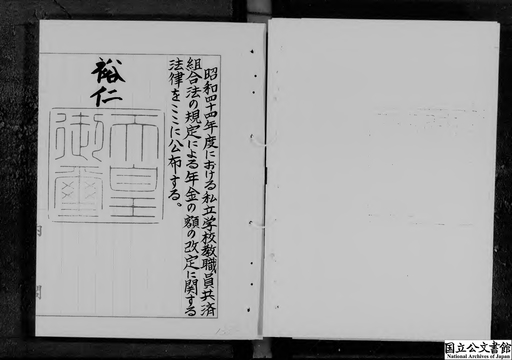 昭和四十四年度における私立学校教職員共済
組合法の規定による年金の額の改定に関する
法律をここに公布する。
裕仁
天皇
御璽
国立公文書館
National Archives of Japan